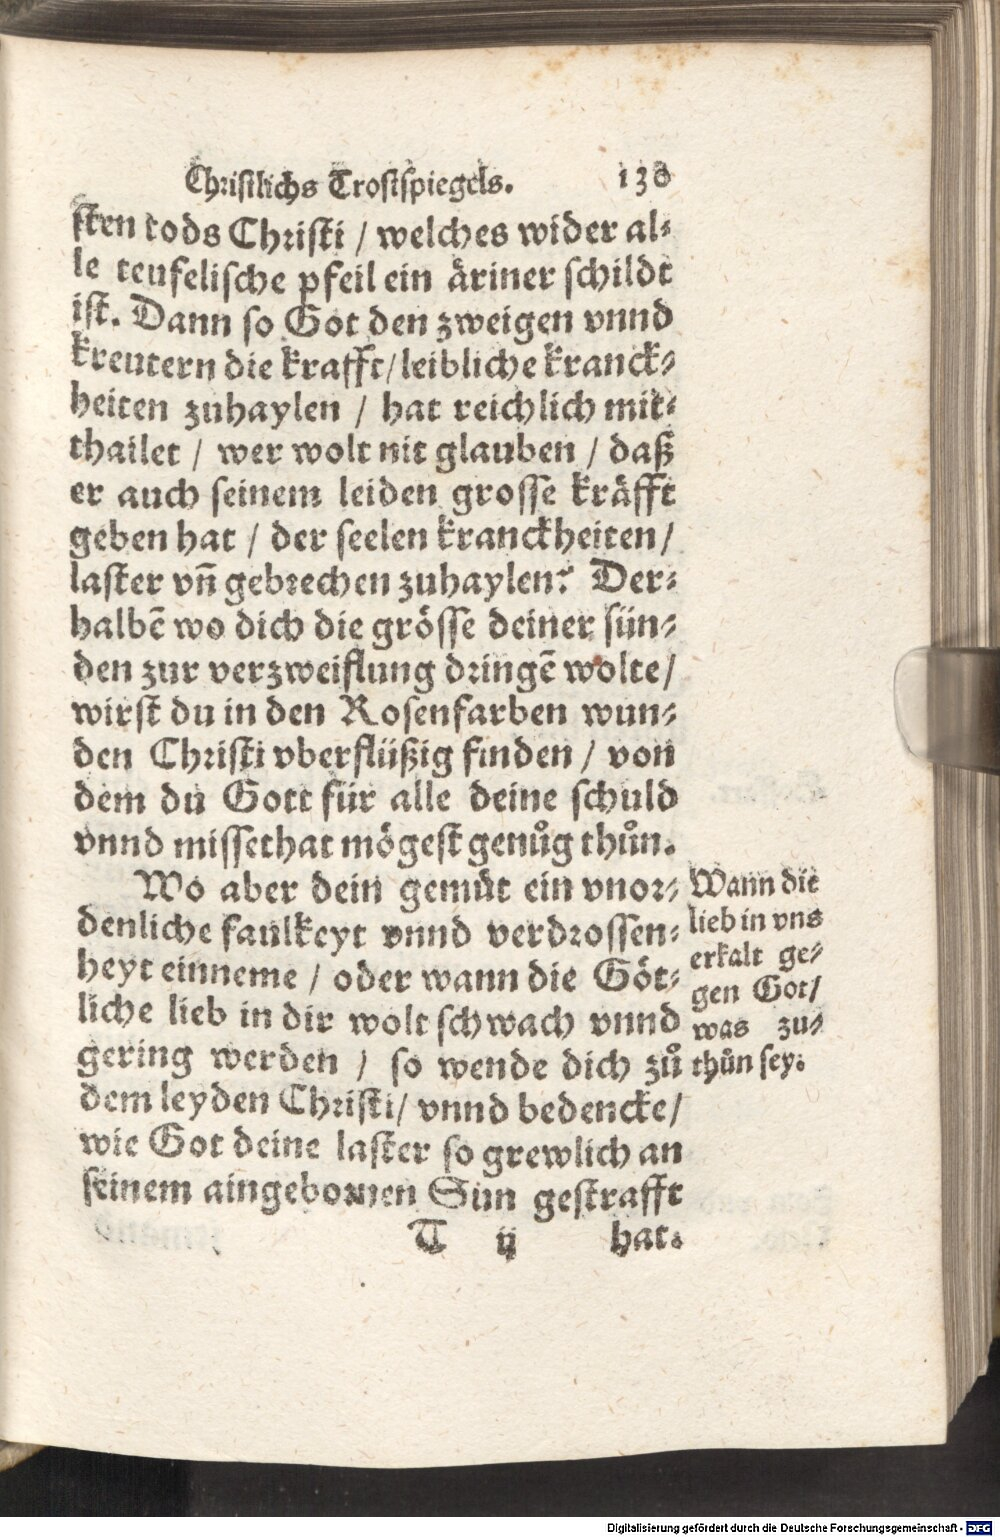 Christlichs Trostspiegels. 130
sten tods Christi / welches wider al⸗
le teufelische pfeil ein äriner schildt
ist. Dann so Got den zweigen vnnd
kreutern die krafft / leibliche kranck⸗
heiten zuhaylen / hat reichlich mit⸗
thailet / wer wolt nit glauben / daß
er auch seinem leiden grosse kräfft
geben hat / der seelen kranckheiten /
laster vñ gebrechen zuhaylen? Der⸗
halbē wo dich die grösse deiner sün⸗
den zur verzweiflung dringē wolte /
wirst du in den Rosenfarben wun⸗
den Christi vberflüßig finden / von
dem du Gott für alle deine schuld
vnnd missethat mögest genůg thůn.
Wo aber dein gemüt ein vnor⸗
denliche faulkeyt vnnd verdrossen⸗
heyt einneme / oder wann die Göt⸗
liche lieb in dir wolt schwach vnnd
gering werden / so wende dich zů
dem leyden Christi / vnnd bedencke /
wie Got deine laster so grewlich an
seinem aingebornen Sun gestrafft
T ij hat.
Wann die
lieb in vns
erkalt ge⸗
gen Got /
was zu⸗
thůn sey.
Digitalisierung gefördert durch die Deutsche Forschungsgemeinschaft - DFG